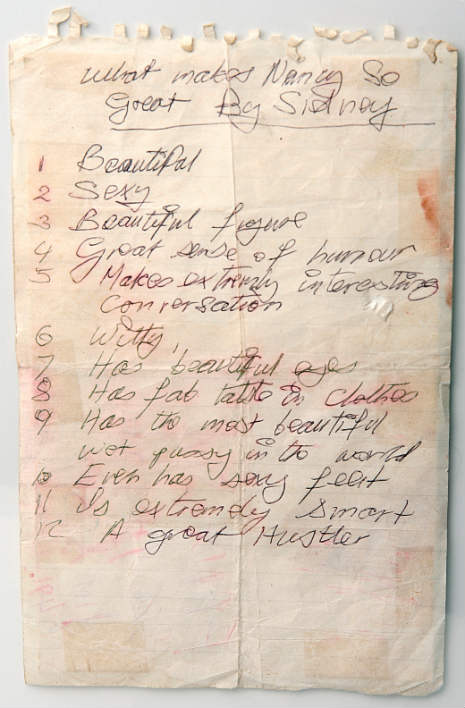 What makes Nancy So
Great By Sidney
1 Beautiful
2 Sexy
3 Beautiful figure
4 Great sense of humour
5 Makes extremly interesting
Conversation
6 Witty
7 Has beautiful eyes
8 Has fab taste in clothes
9 Has the most beautiful
wet pussy in the world
10 Even has sexy feet
11 Is extremly smart
12 A great Hustler